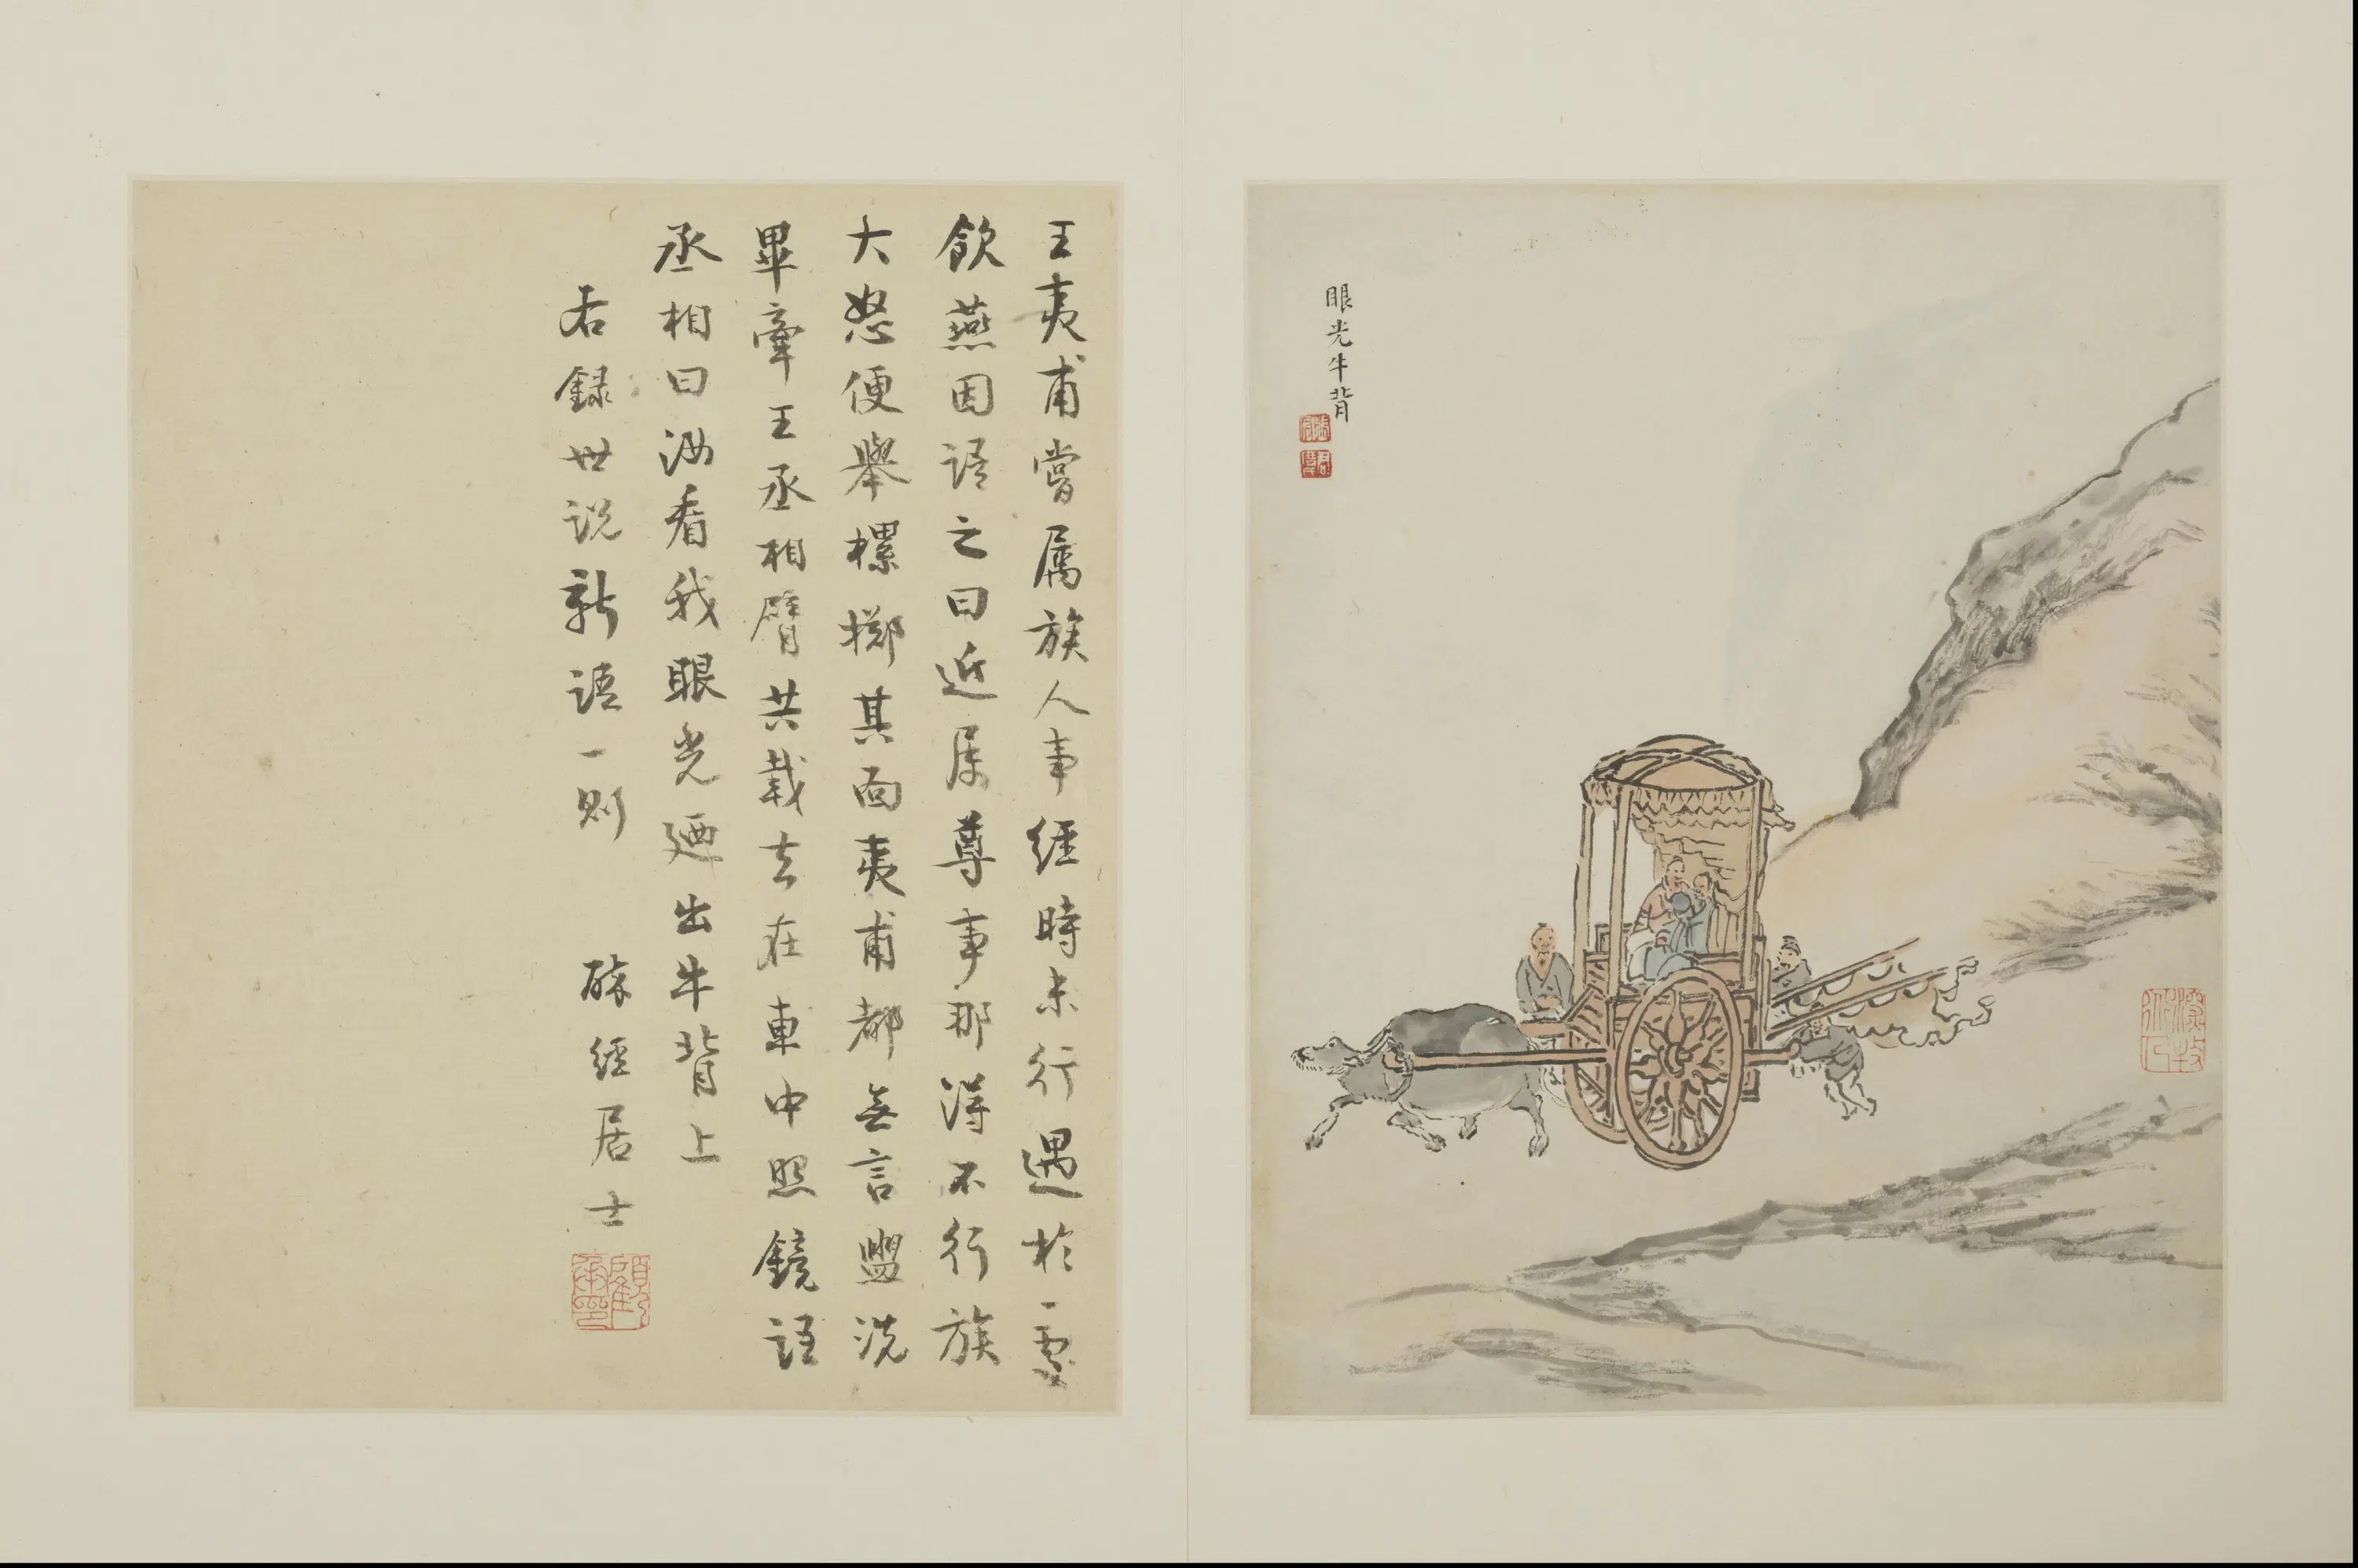 眼光牛背
王夷甫嘗属族人事經時未行遇於一處
飲燕因語之曰近属尊事那得不行族
大怒便舉樏擲其面夷甫都無言盥洗
畢牽王丞相臂共載去在車中照鏡語
丞相曰汝看我眼光迺出牛背上
右録世説新語一則 醉經居士